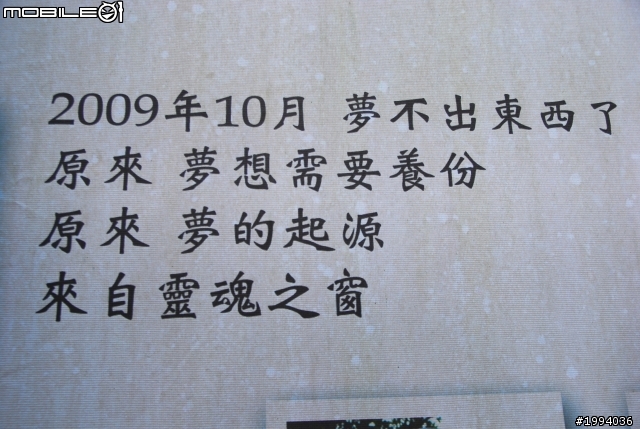 MOBILE01
2009年10月 夢不出東西了
原來 夢想需要養份
原來 夢的起源
來自靈魂之窗
#1994036